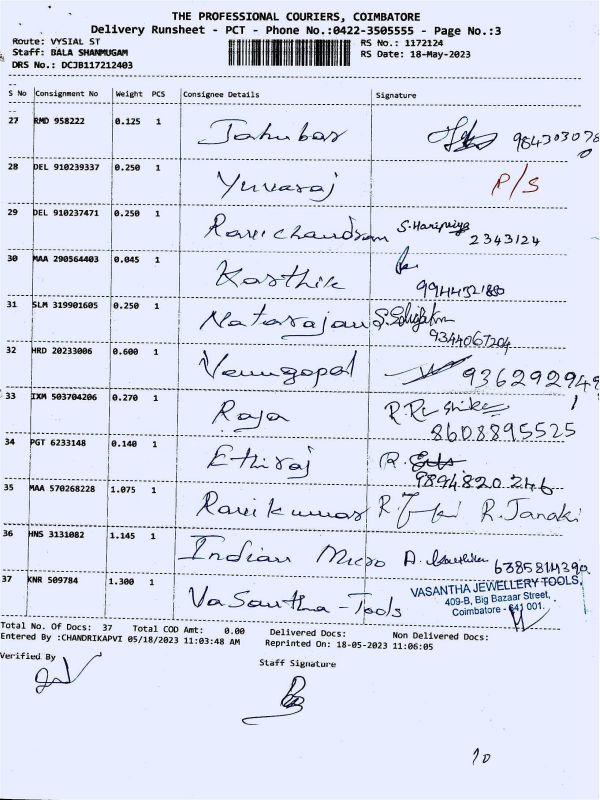 THE PROFESSIONAL COURIERS, COIMBATORE
Delivery Runsheet - PCT - Phone No.:0422-3505555 - Page No.:3
Route: VYSIAL ST
Staff: BALA SHANMUGAM
DRS No.: DCJB117212403
RS No.: 1172124
RS Date: 18-May-2023
S No Consignment No Weight PCS Consignee Details Signature
27 RMD 958222 0.125 1 Jahubar
28 DEL 910239337 0.250 1 Yuvaraj P/S
29 DEL 910237471 0.250 1 Ravichandran S. Haripriya
2343124
30 MAA 290564403 0.045 1 Karthik
31 SLM 319901605 0.250 1 Natarajan
9344067204
32 HRD 20233006 0.600 1 Venugopal 9362929491
33 IXM 503704206 0.270 1 Raja
8608895525
34 PGT 6233148 0.140 1 Ethiraj
9894820246
35 MAA 570268228 1.075 1 Ravikumar R. Janaki
36 HNS 3131082 1.145 1 Indian Micro 6385814390
37 KNR 509784 1.300 1 Vasantha - Tools
VASANTHA JEWELLERY TOOLS,
409-B, Big Bazaar Street,
Coimbatore - 641 001.
Total No. Of Docs: 37 Total COD Amt: 0.00 Delivered Docs: Non Delivered Docs:
Entered By :CHANDRIKAPVI 05/18/2023 11:03:48 AM Reprinted On: 18-05-2023 11:06:05
Verified By
Staff Signature